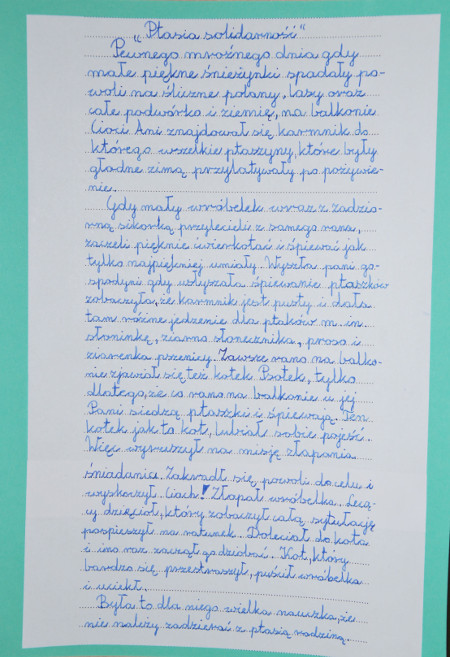 „Ptasia solidarność"
Pewnego mroźnego dnia gdy
małe piękne śnieżynki spadały po-
woli na śliczne polany, lasy oraz
całe podwórko i ziemię, na balkonie
Cioci Ani znajdował się karmnik do
którego wszelkie ptaszyny, które były
głodne zimą przylatywały po pożywie-
nie.
Gdy mały wróbelek wraz z zadzio-
rną sikorką przylecieli z samego rana,
zaczeli pięknie ćwierkotać i śpiewać jak
tylko najpiękniej umiały. Wyszła pani go-
spodyni gdy usłyszała śpiewanie ptaszków
zobaczyła, że karmnik jest pusty i dała
tam różne jedzenie dla ptaków m. in.
słoninkę, ziarna słonecznika, proso i
ziarenka pszenicy. Zawsze rano na balko-
nie zjawiał się też kotek Psotek, tylko
dlatego, że co rano na balkonie u jej
Pani siedzą ptaszki i śpiewają. Ten
kotek jak to kot, lubiał sobie pojeść.
Więc wyruszył na misję złapania
śniadania. Zakradł się powoli do celu i
wyskoczył. Ciach! Złapał wróbelka. Lecą-
cy dzięcioł, który zobaczył całą sytułację
pospieszył na ratunek. Doleciał do kota
i ino raz zaczął go dziobać. Kot, który
bardzo się przestraszył, puścił wróbelka
i uciekł.
Była to dla niego wielka nauczka, że
nie należy zadzierać z ptasią rodziną.